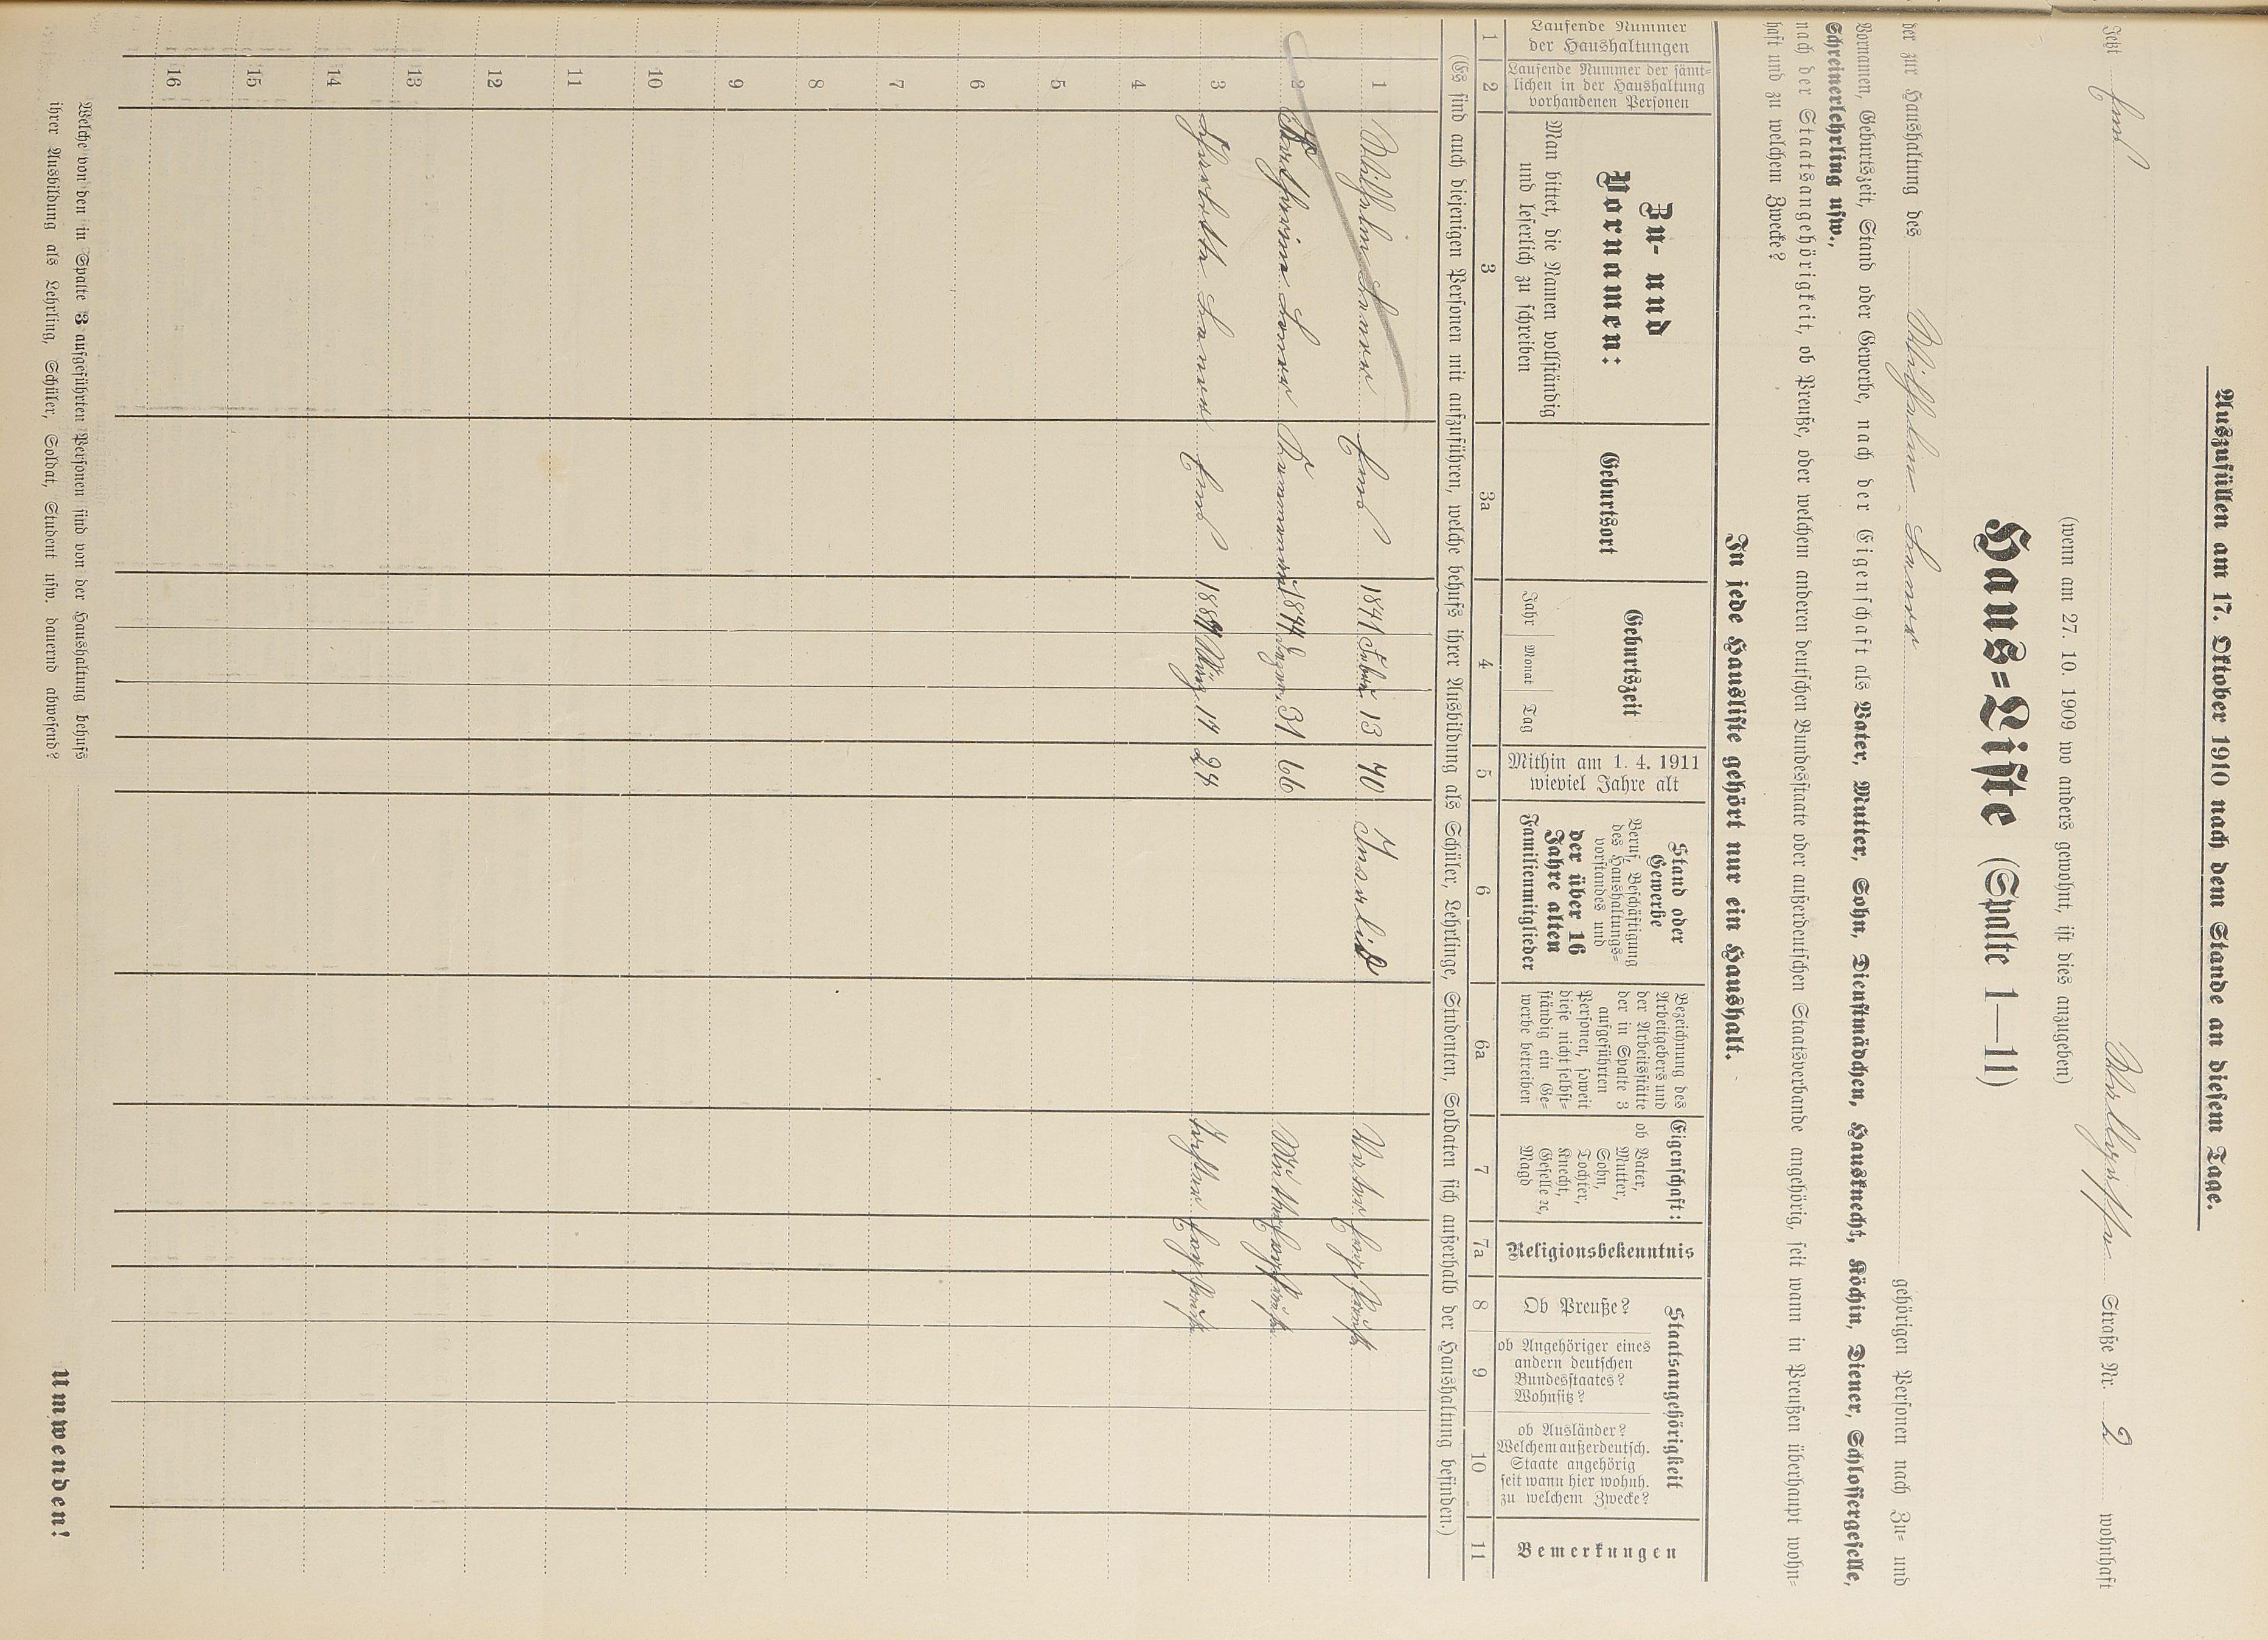 Auszufüllen am 17. Oktober 1910 nach dem Stande an diesem Tage.
Jetzt Ems Straße Nr. 2 wohnhaft
(wenn am 27. 10. 1909 wo anders gewohnt, ist dies anzugeben)
Haus=Liste (Spalte 1—11)
der zur Haushaltung des Wilhelm gehörigen Personen nach Zu= und
Vornamen, Geburtszeit, Stand oder Gewerbe, nach der Eigenschaft als Vater, Mutter, Sohn, Dienstmädchen, Hausknecht, Köchin, Diener, Schlossergeselle,
Schreinerlehrling usw.,
nach der Staatsangehörigkeit, ob Preuße, oder welchem anderen deutschen Bundesstaate oder außerdeutschen Staatsverbande angehörig, seit wann in Preußen überhaupt wohn=
haft und zu welchem Zwecke?
In jede Hausliste gehört nur ein Haushalt.
Laufende Nummer
der Haushaltungen
Laufende Nummer der sämt=
lichen in der Haushaltung
vorhandenen Personen
Zu- und
Vornamen:
Man bittet, die Namen vollständig
und leserlich zu schreiben
Geburtsort
Geburtszeit
Jahr Monat Tag
Mithin am 1. 4. 1911
wieviel Jahre alt
Stand oder
Gewerbe
Beruf, Beschäftigung
des Haushaltungs=
vorstandes und
der über 16
Jahre alten
Familienmitglieder
Bezeichnung des
Arbeitgebers und
der Arbeitsstätte
der in Spalte 3
aufgeführten
Personen, soweit
diese nicht selbst=
ständig ein Ge=
werbe betreiben
Eigenschaft:
ob Vater,
Mutter,
Sohn,
Tochter,
Knecht,
Geselle ꝛc,
Magd
Religionsbekenntnis
Staatsangehörigkeit
Ob Preuße?
ob Angehöriger eines
andern deutschen
Bundesstaates?
Wohnsitz?
ob Ausländer?
Welchem außerdeutsch.
Staate angehörig
seit wann hier wohnh.
zu welchem Zwecke?
Bemerkungen
1 2 3 3a 4 5 6 6a 7 7a 8 9 10 11
(Es sind auch diejenigen Personen mit aufzuführen, welche behufs ihrer Ausbildung als Schüler, Lehrlinge, Studenten, Soldaten sich außerhalb der Haushaltung befinden.)
1 Wilhelm Ems 1841 Febr. 13 70 Invalid Vater
2 31 66 Mutter
3 Ems März 17 24 Tochter
4
5
6
7
8
9
10
11
12
13
14
15
16
Welche von den in Spalte 3 aufgeführten Personen sind von der Haushaltung behufs
ihrer Ausbildung als Lehrling, Schüler, Soldat, Student usw. dauernd abwesend?
Umwenden!